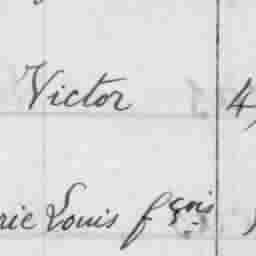 Victor 4
ric Louis fçois